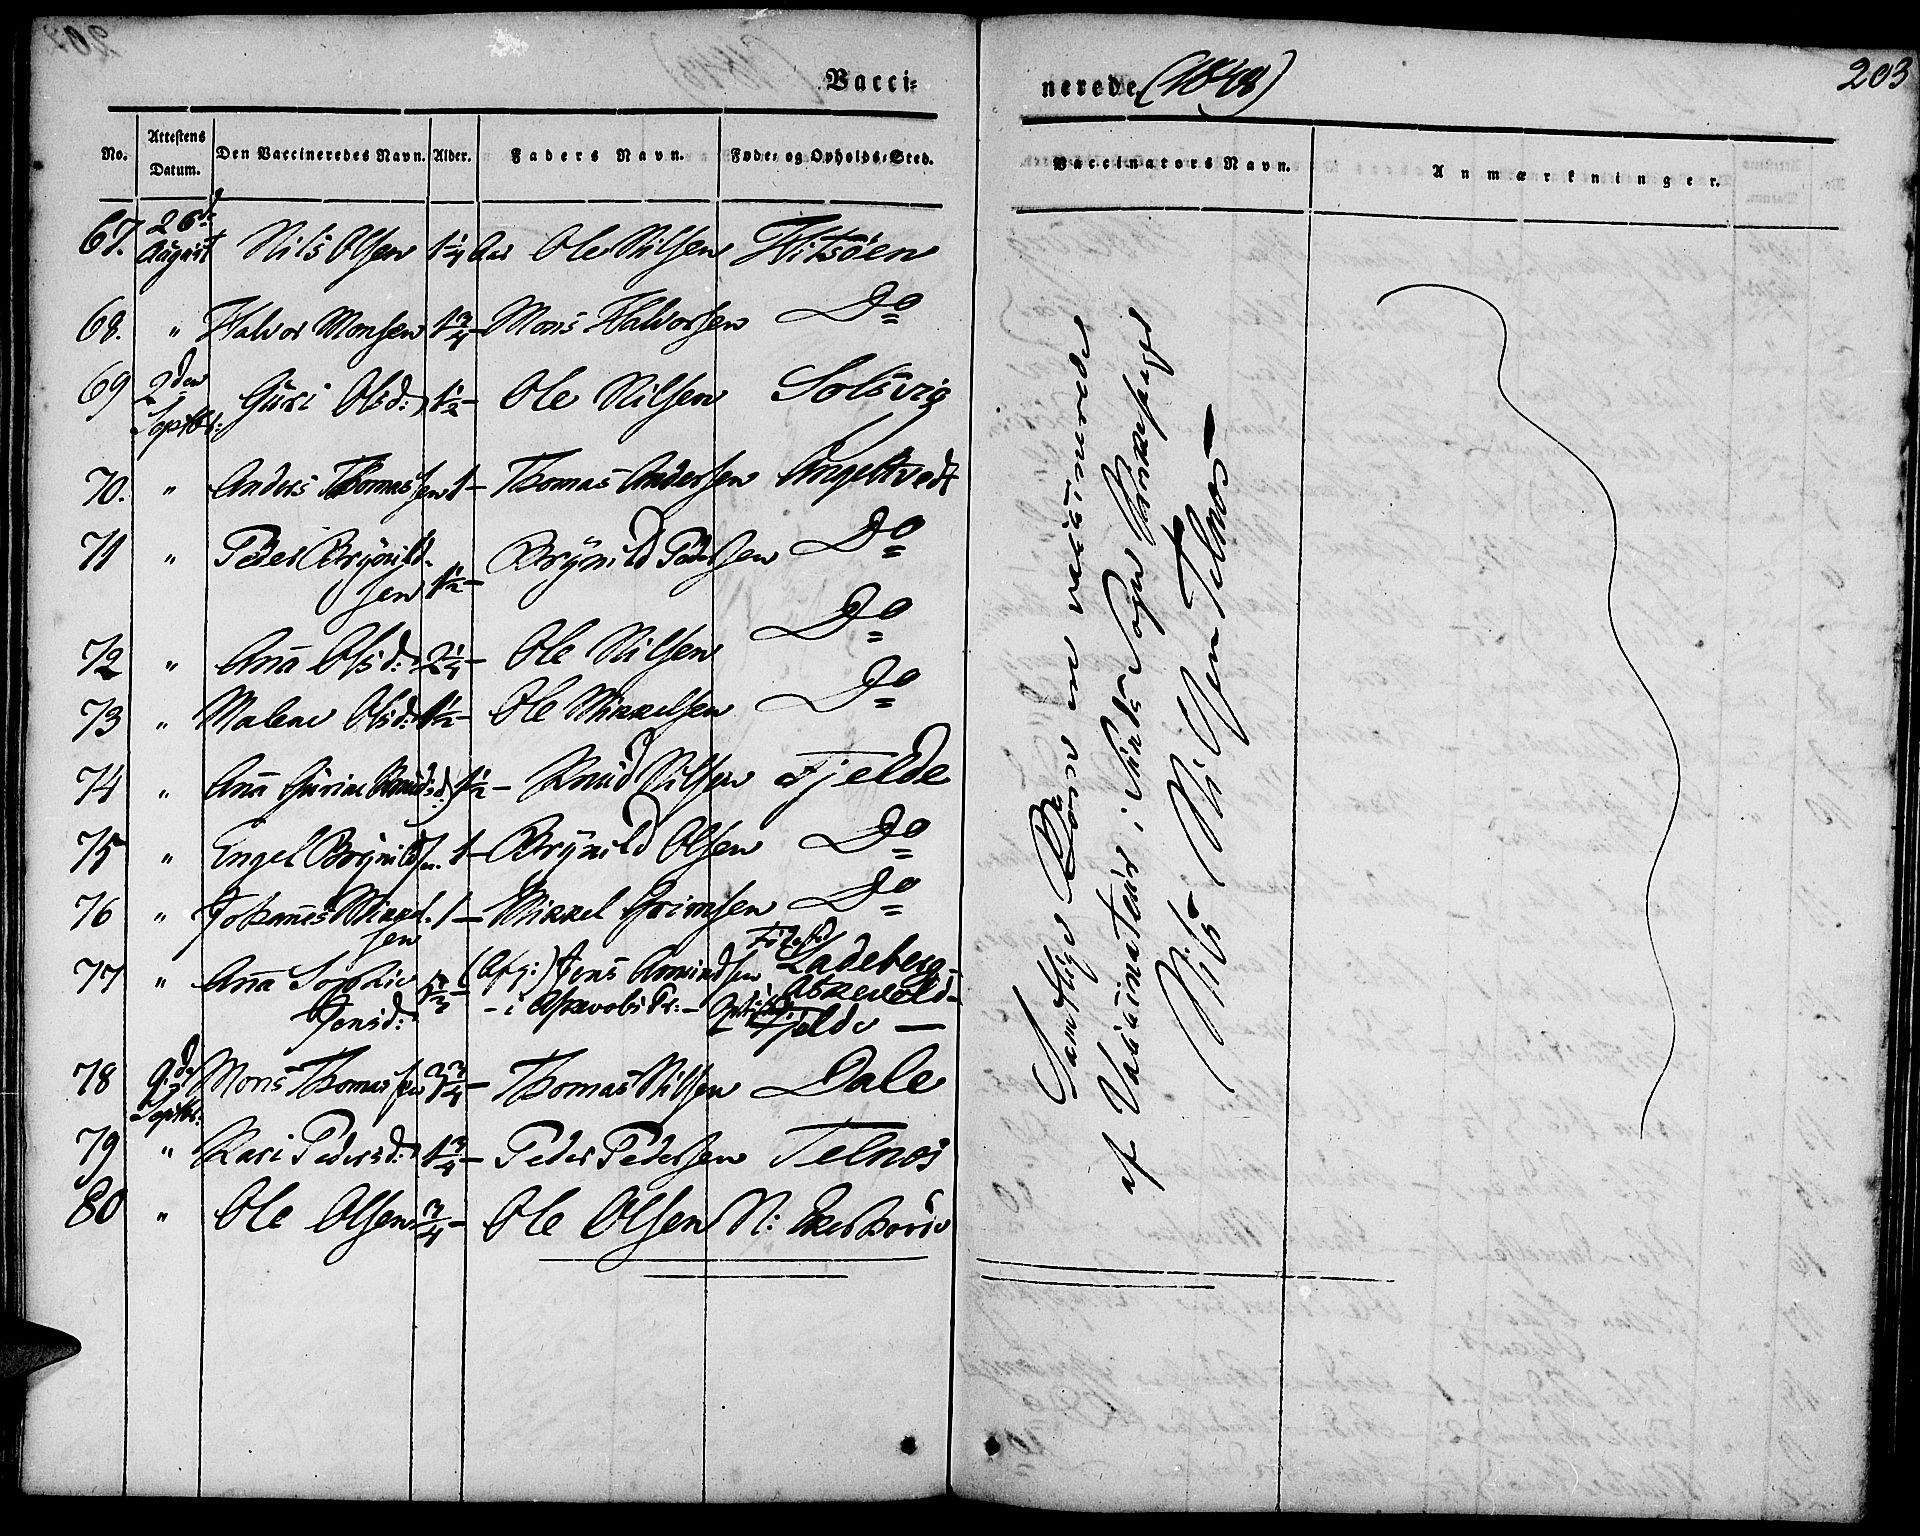 Vacci=
nerede (1848)
203
No. Attestens Datum. Den Vaccineredes Navn. Alder. Faders Navn. Føde- og Opholds-Sted.
Vaccinators Navn. Anmærkninger.
67. 26de August Nils Olsen 1 1/4 Aar Ole Nilsen Flitsöen
68. " Halvor Monsen 1 3/4 – Mons Halvorsen Do
69 2den Septbr: Guri Olsd: 1 1/2 – Ole Nilsen Solsvig
70. " Anders Thomassen 1 – Thomas Andersen Angeltvedt
71 " Peder Brynild-
sen 1 1/2 – Brynild Pedersen Do
72 " Anna Olsd: 2 1/4 – Ole Nilsen Do
73 " Malene Olsd: 1 1/2 – Ole Mikkelsen Do
74 " Anna Gurine Knudsd:) 1 1/2 – Knud Nilsen Fjelde
75 " Engel Brynilds. 1 – Brynild Olsen Do
76 " Johannes Mikkel-
sen 1 – Mikkel Grimsen Do
77 " Anna Sophie (Afg:) Jens Amundsen Födested Ladeberg –
Jensd: – i Askevolds Pr: – Askevold –
Fjelde –
78 9de Septbr: Mons Thomassen 2 3/4 – Thomas Nilsen Dale
79 " Kari Pedersd: 1 3/4 – Peder Pedersen Telnos
80 " Ole Olsen 3/4 – Ole Olsen N: Ekerhovde
Samtlige Börn ere vaccinerede
af Vaccinateur i Sunds Sogn
Nils Nilsen Telnos –